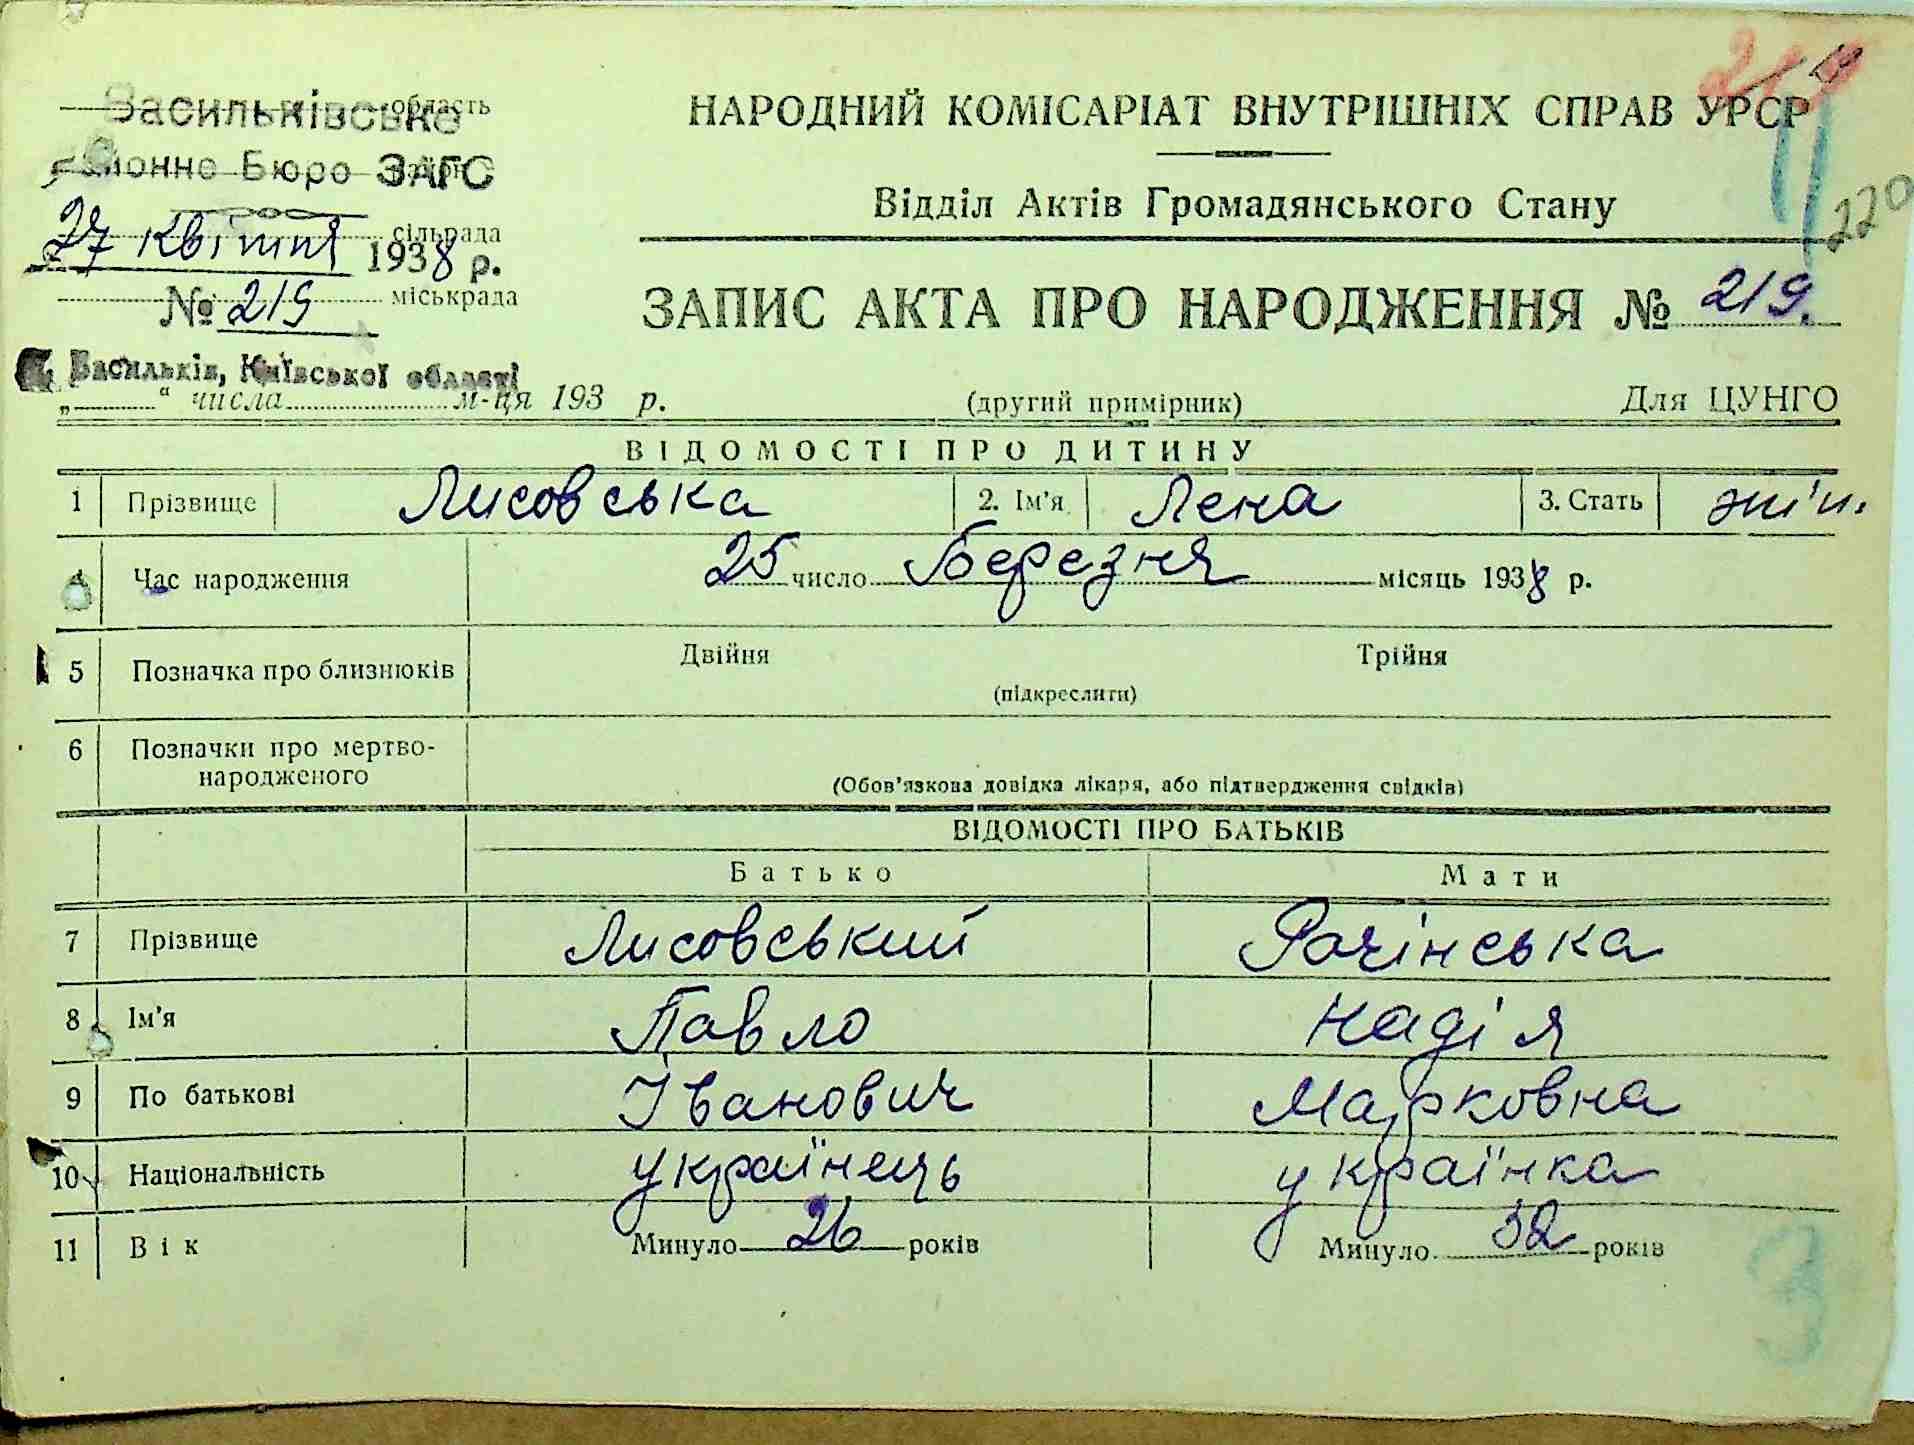 Васильківське область
районне Бюро ЗАГС
27 квітня 1938 р. сільрада
№ 219 міськрада
м. Васильків, Київської області
„ “ числа м-ця 193 р.
219
220
НАРОДНИЙ КОМІСАРІАТ ВНУТРІШНІХ СПРАВ УРСР
Відділ Актів Громадянського Стану
ЗАПИС АКТА ПРО НАРОДЖЕННЯ № 219.
(другий примірник) Для ЦУНГО
ВІДОМОСТІ ПРО ДИТИНУ
1 Прізвище Лисовська 2. Ім'я Лена 3. Стать жін.
4 Час народження 25 число Березня місяць 1938 р.
5 Позначка про близнюків Двійня Трійня
(підкреслити)
6 Позначки про мертво-
народженого
(Обов'язкова довідка лікаря, або підтвердження свідків)
ВІДОМОСТІ ПРО БАТЬКІВ
Батько Мати
7 Прізвище Лисовський Рочінська
8 Ім'я Павло Надія
9 По батькові Іванович Марковна
10 Національність українець українка
11 Вік Минуло 26 років Минуло 32 років
3